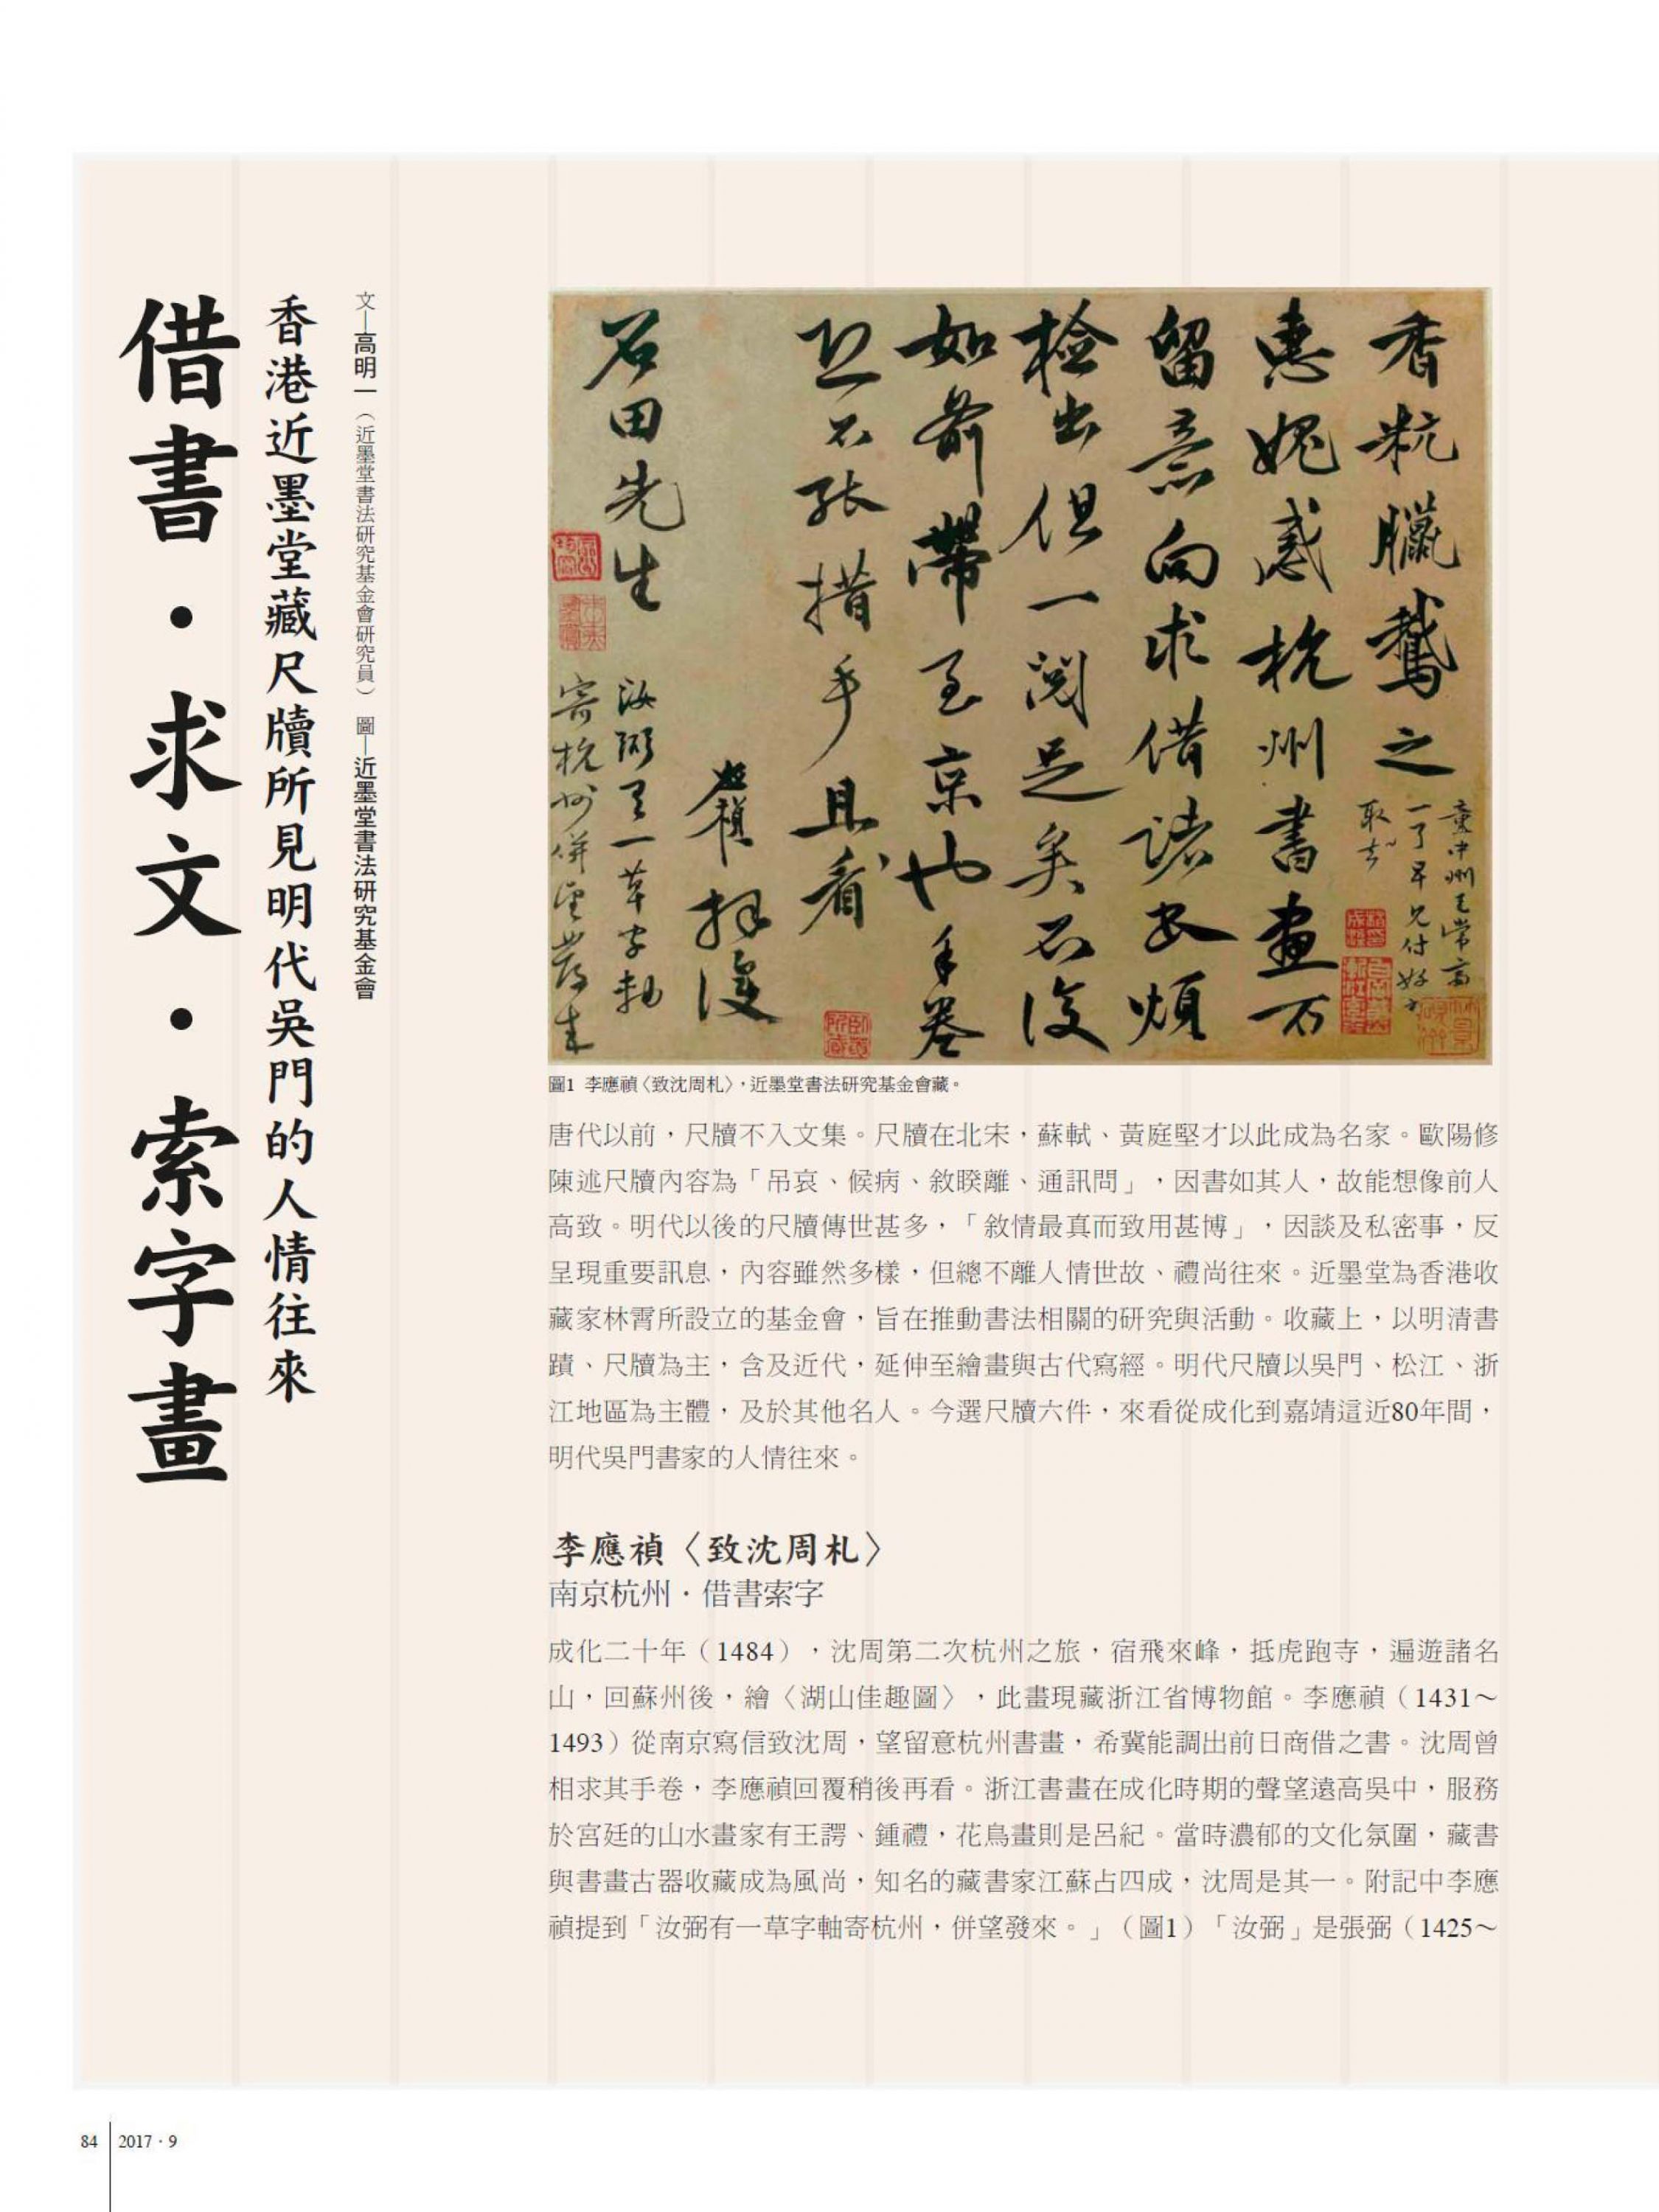 借書・求文・索字畫
香港近墨堂藏尺牘所見明代吳門的人情往來
文—高明一（近墨堂書法研究基金會研究員） 圖—近墨堂書法研究基金會
香秔臘鵞之
惠媿感杭州書畫不
留意向求借諸書煩
檢出但一閱足矣不復
如前帶至京也手卷
恐不張措手且看
應禎拜復
石田先生
汝弼有一草字軸
寄杭州併望發來
圖1 李應禎〈致沈周札〉，近墨堂書法研究基金會藏。
唐代以前，尺牘不入文集。尺牘在北宋，蘇軾、黃庭堅才以此成為名家。歐陽修
陳述尺牘內容為「吊哀、候病、敘睽離、通訊問」，因書如其人，故能想像前人
高致。明代以後的尺牘傳世甚多，「敘情最真而致用甚博」，因談及私密事，反
呈現重要訊息，內容雖然多樣，但總不離人情世故、禮尚往來。近墨堂為香港收
藏家林霄所設立的基金會，旨在推動書法相關的研究與活動。收藏上，以明清書
蹟、尺牘為主，含及近代，延伸至繪畫與古代寫經。明代尺牘以吳門、松江、浙
江地區為主體，及於其他名人。今選尺牘六件，來看從成化到嘉靖這近80年間，
明代吳門書家的人情往來。
李應禎〈致沈周札〉
南京杭州・借書索字
成化二十年（1484），沈周第二次杭州之旅，宿飛來峰，抵虎跑寺，遍遊諸名
山，回蘇州後，繪〈湖山佳趣圖〉，此畫現藏浙江省博物館。李應禎（1431～
1493）從南京寫信致沈周，望留意杭州書畫，希冀能調出前日商借之書。沈周曾
相求其手卷，李應禎回覆稍後再看。浙江書畫在成化時期的聲望遠高吳中，服務
於宮廷的山水畫家有王諤、鍾禮，花鳥畫則是呂紀。當時濃郁的文化氛圍，藏書
與書畫古器收藏成為風尚，知名的藏書家江蘇占四成，沈周是其一。附記中李應
禎提到「汝弼有一草字軸寄杭州，併望發來。」（圖1）「汝弼」是張弼（1425～
84 2017・9